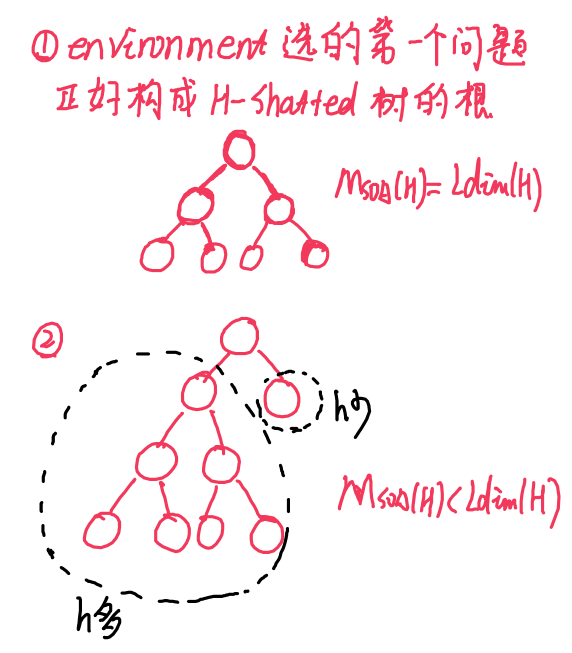 ① environment 选的第一个问题
正好构成 H-Shatted 树的根
M_SOA(H)=Ldim(H)
②
h少
M_SOA(H)<Ldim(H)
h多